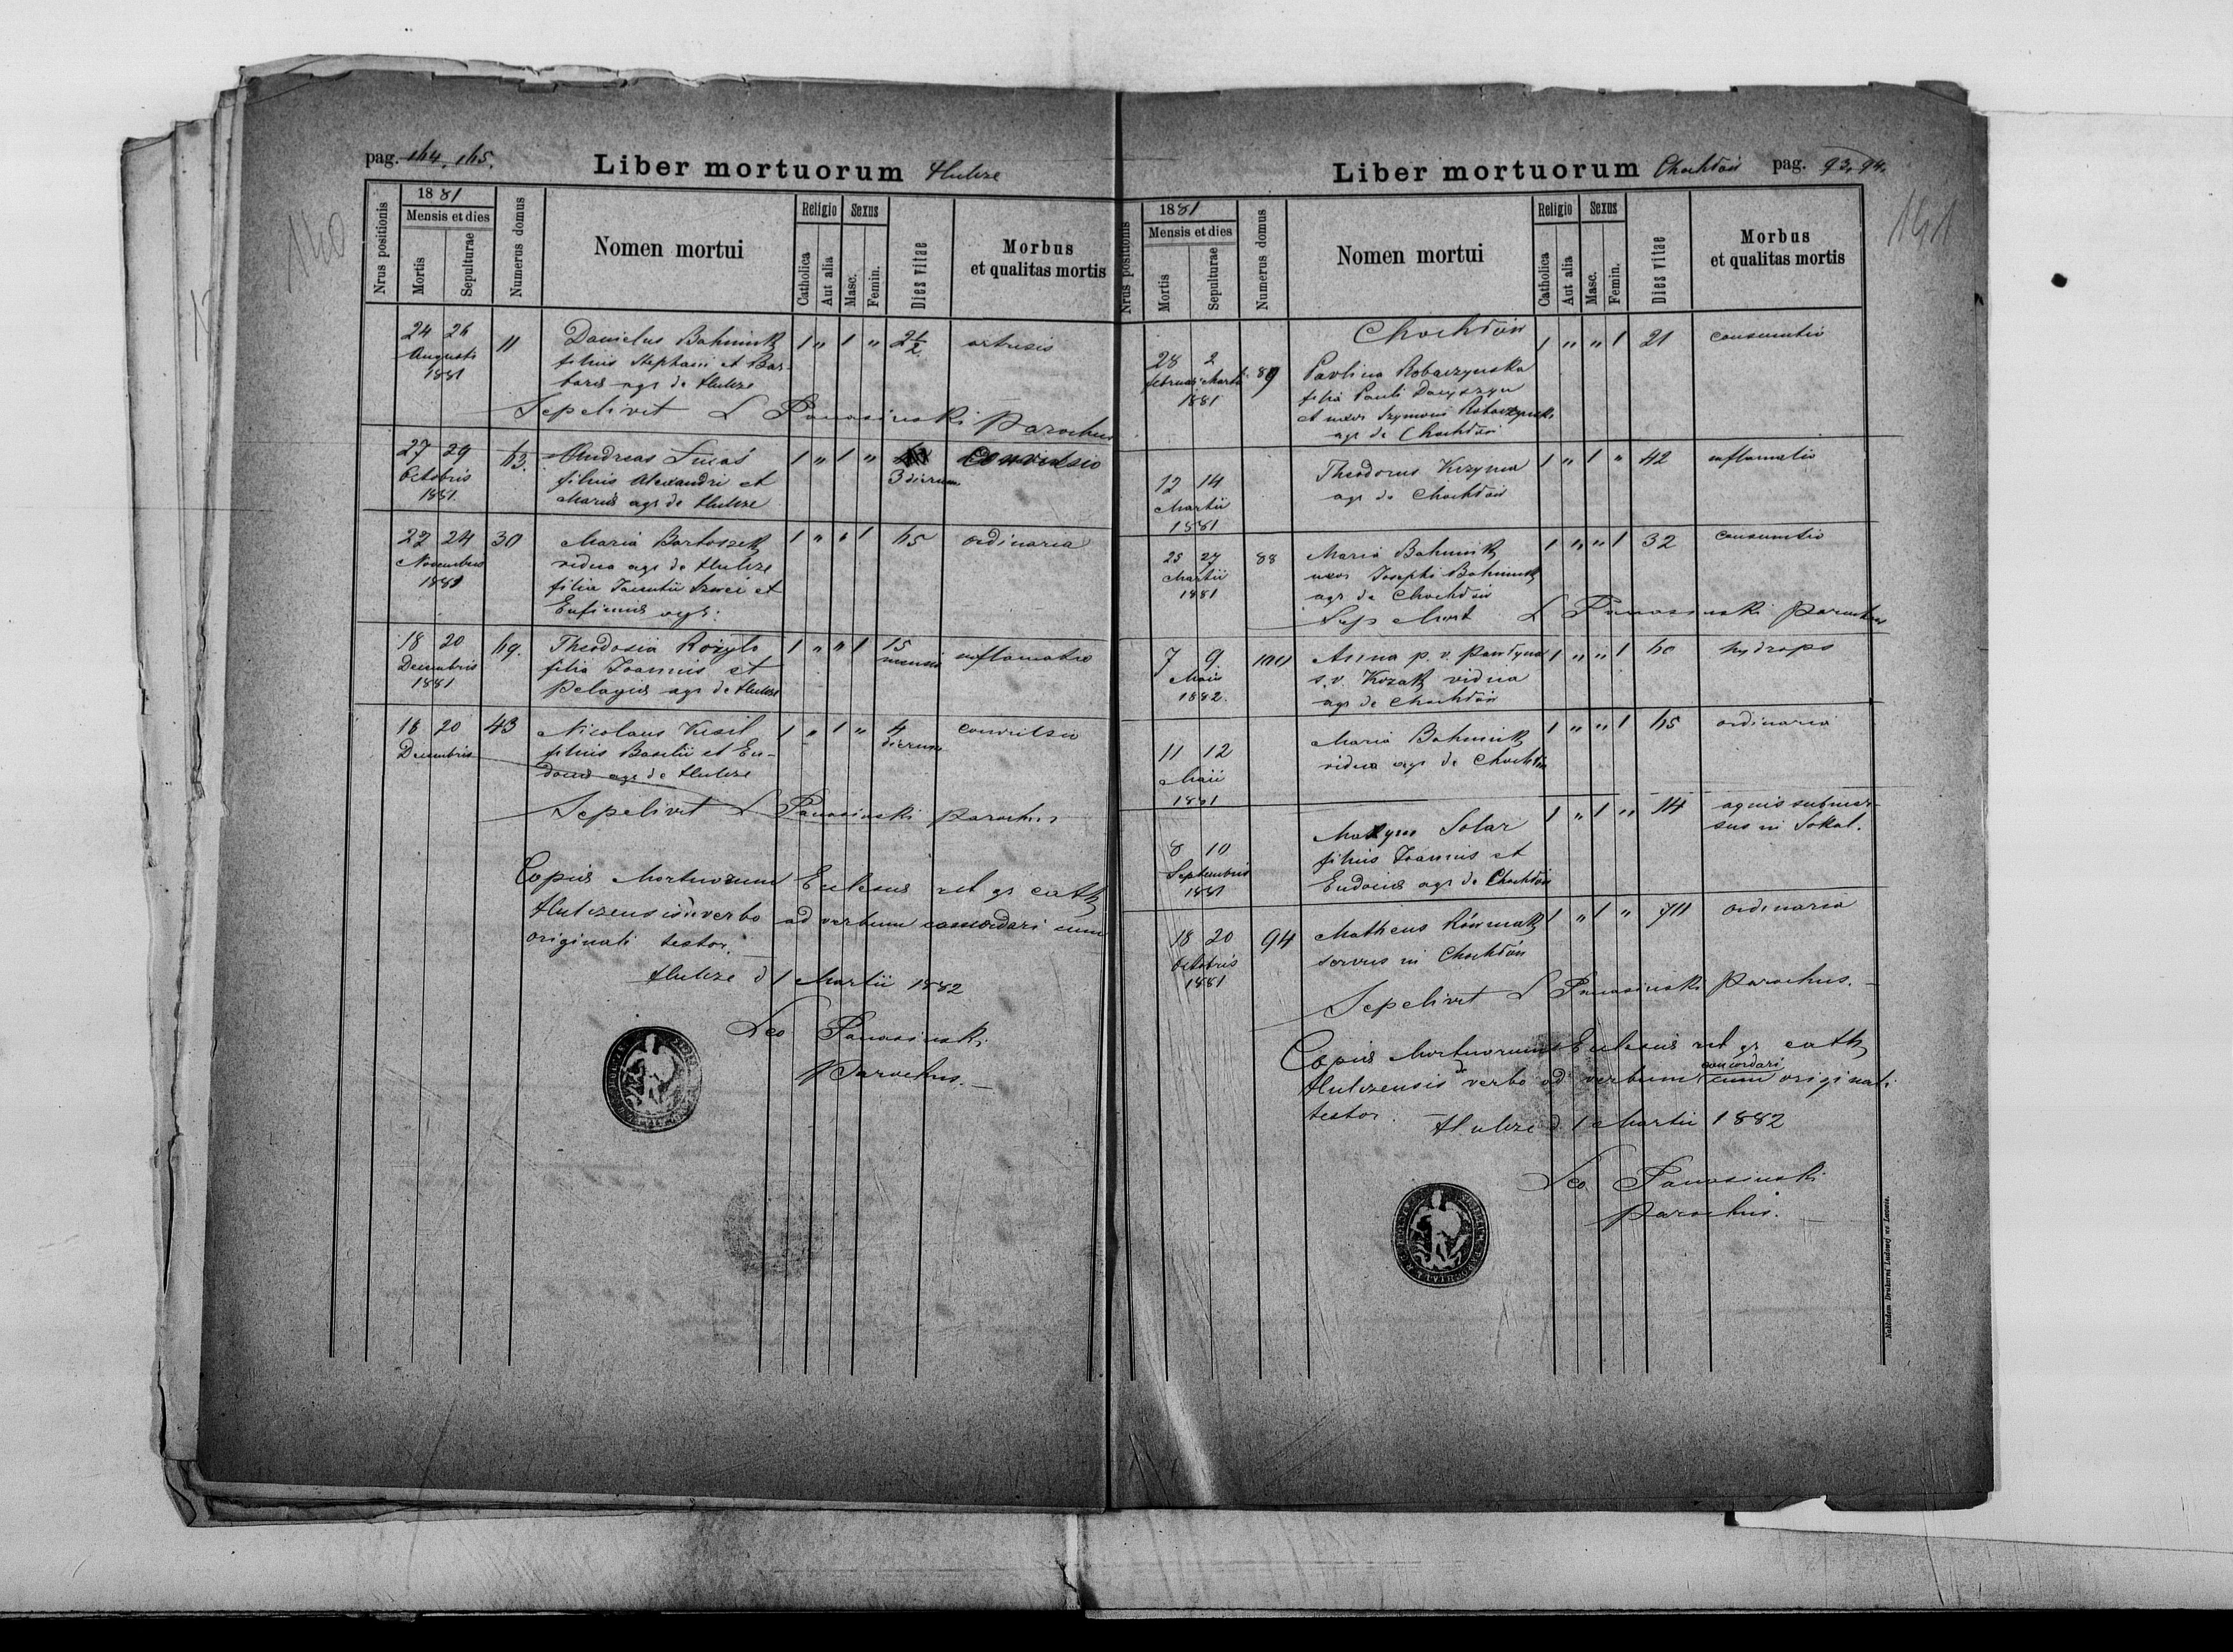 pag. 164, 165.
Liber mortuorum Hulcze
140
Nrus positionis
1881
Mensis et dies
Mortis
Sepulturae
Numerus domus
Nomen mortui
Religio
Catholica
Aut alia
Sexus
Masc.
Femin.
Dies vitae
Morbus
et qualitas mortis
24 26 11 Danielus Bohuniuk 1 " 1 " 2½
Augusti filius Stephani et Bar-
1881 barae agr de Hulcze
Sepelivit L Panasinski Parochus
27 29 63. Andreas 1 " 1 " convulsio
Octobris filius Alexandri et 3 dierum
1881. Mariae agr de Hulcze
22 24 30 Maria Bartoszek 1 " " 1 65 ordinaria
Novembris vidua agr de Hulcze
1881 filia et
Eufimiae agr:
18 20 69. Theodosia 1 " " 1 15 inflamatio
Decembris filia Joannis et mensis
1881 Pelagiae agr de Hulcze
18 20 43 Nicolaus Kisil 1 " 1 " 4 convulsio
Decembris filius Basilii et Eu- dierum
dociae agr de Hulcze
Sepelivit L Panasinski parochus
Copiae Mortuorum Ecclesiae rit gr cath
Hulczensis de verbo ad verbum concordari cum
originali testor.
Hulcze d 1 Martii 1882
Leo Panasinski
Parochus.
Liber mortuorum Chochłów pag. 93, 94.
141
Nrus positionis
1881
Mensis et dies
Mortis
Sepulturae
Numerus domus
Nomen mortui
Religio
Catholica
Aut alia
Sexus
Masc.
Femin.
Dies vitae
Morbus
et qualitas mortis
Chochłów
28 2 89 Pavlina Robaczynska 1 " " 1 21 consumtio
februar Marti filia Pauli
1881 et uxor Szymoni Robaczynski
agr de Chochłów
12 14 Theodorus Krzyna 1 " 1 " 42 inflamatio
Martii agr de Chochłów
1881
25 27 88 Maria Bohuniuk 1 " " 1 32 consumtio
Martii uxor Josephi Bohuniuk
1881 agr de Chochłów
Sep L Panasinski parochus
7 9. 100 Anna p. v. 1 " " 1 60 hydrops
Maii s. v. Kozak vidua
1882. agr de Chochłów
11 12 Maria Bohuniuk 1 " " 1 65 ordinaria
Maii vidua agr de Chochłów
1881
8 10 Solar 1 " 1 " 14 aquis submer-
Septembris filius Joannis et sus in Sokal.
1881 Eudociae agr de Chochłów
18 20 94 Matheus 1 " 1 " 70 ordinaria
Octobris servus in Chochłów
1881
Sepelivit L Panasinski Parochus.
Copiae Mortuorum Ecclesiae rit gr cath
Hulczensis de verbo ad verbum concordari cum originali
testor
Hulcze d. 1 Martii 1882
Leo Panasinski
parochus.
Nakładem Drukarni Ludowej we Lwowie.